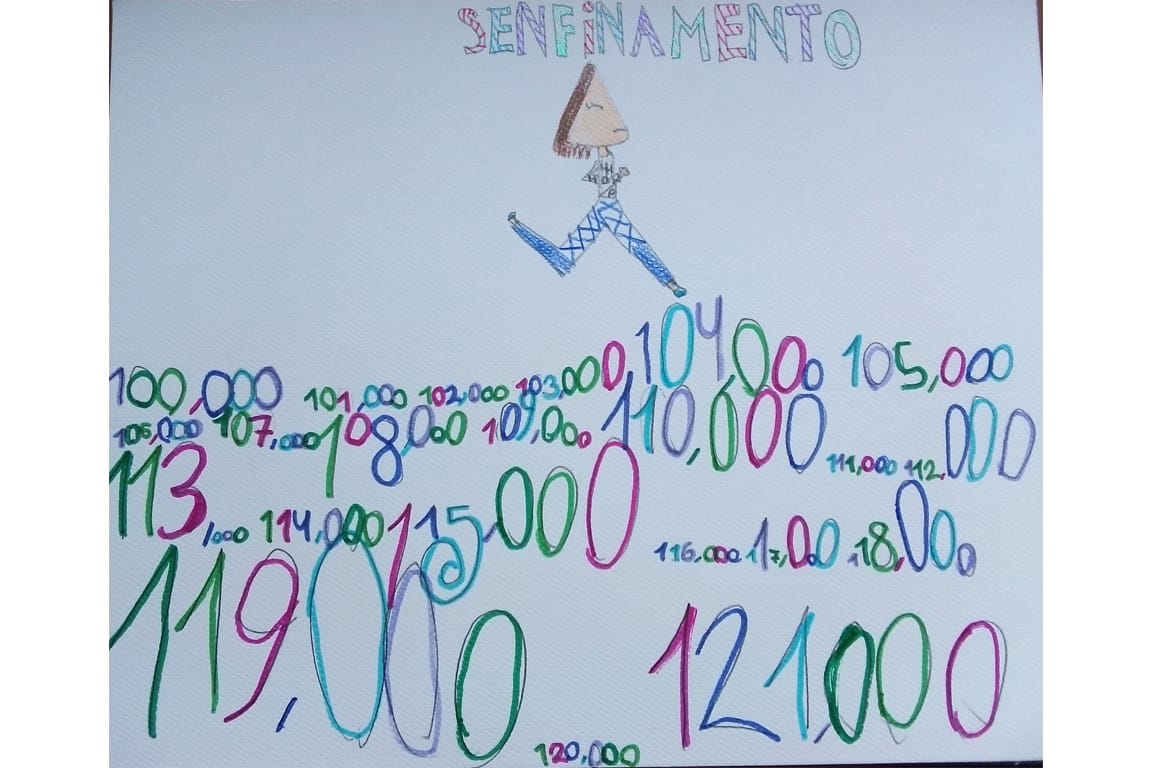 SENFiNAMENTO
100,000 101,000 102,000 103,000, 104,000 105,000
106,000 107,000 108,000 109,000 110,000 111,000 112,000
113,000 114,000 115,000 116,000 117,000 118,000
119,000 120,000 121,000